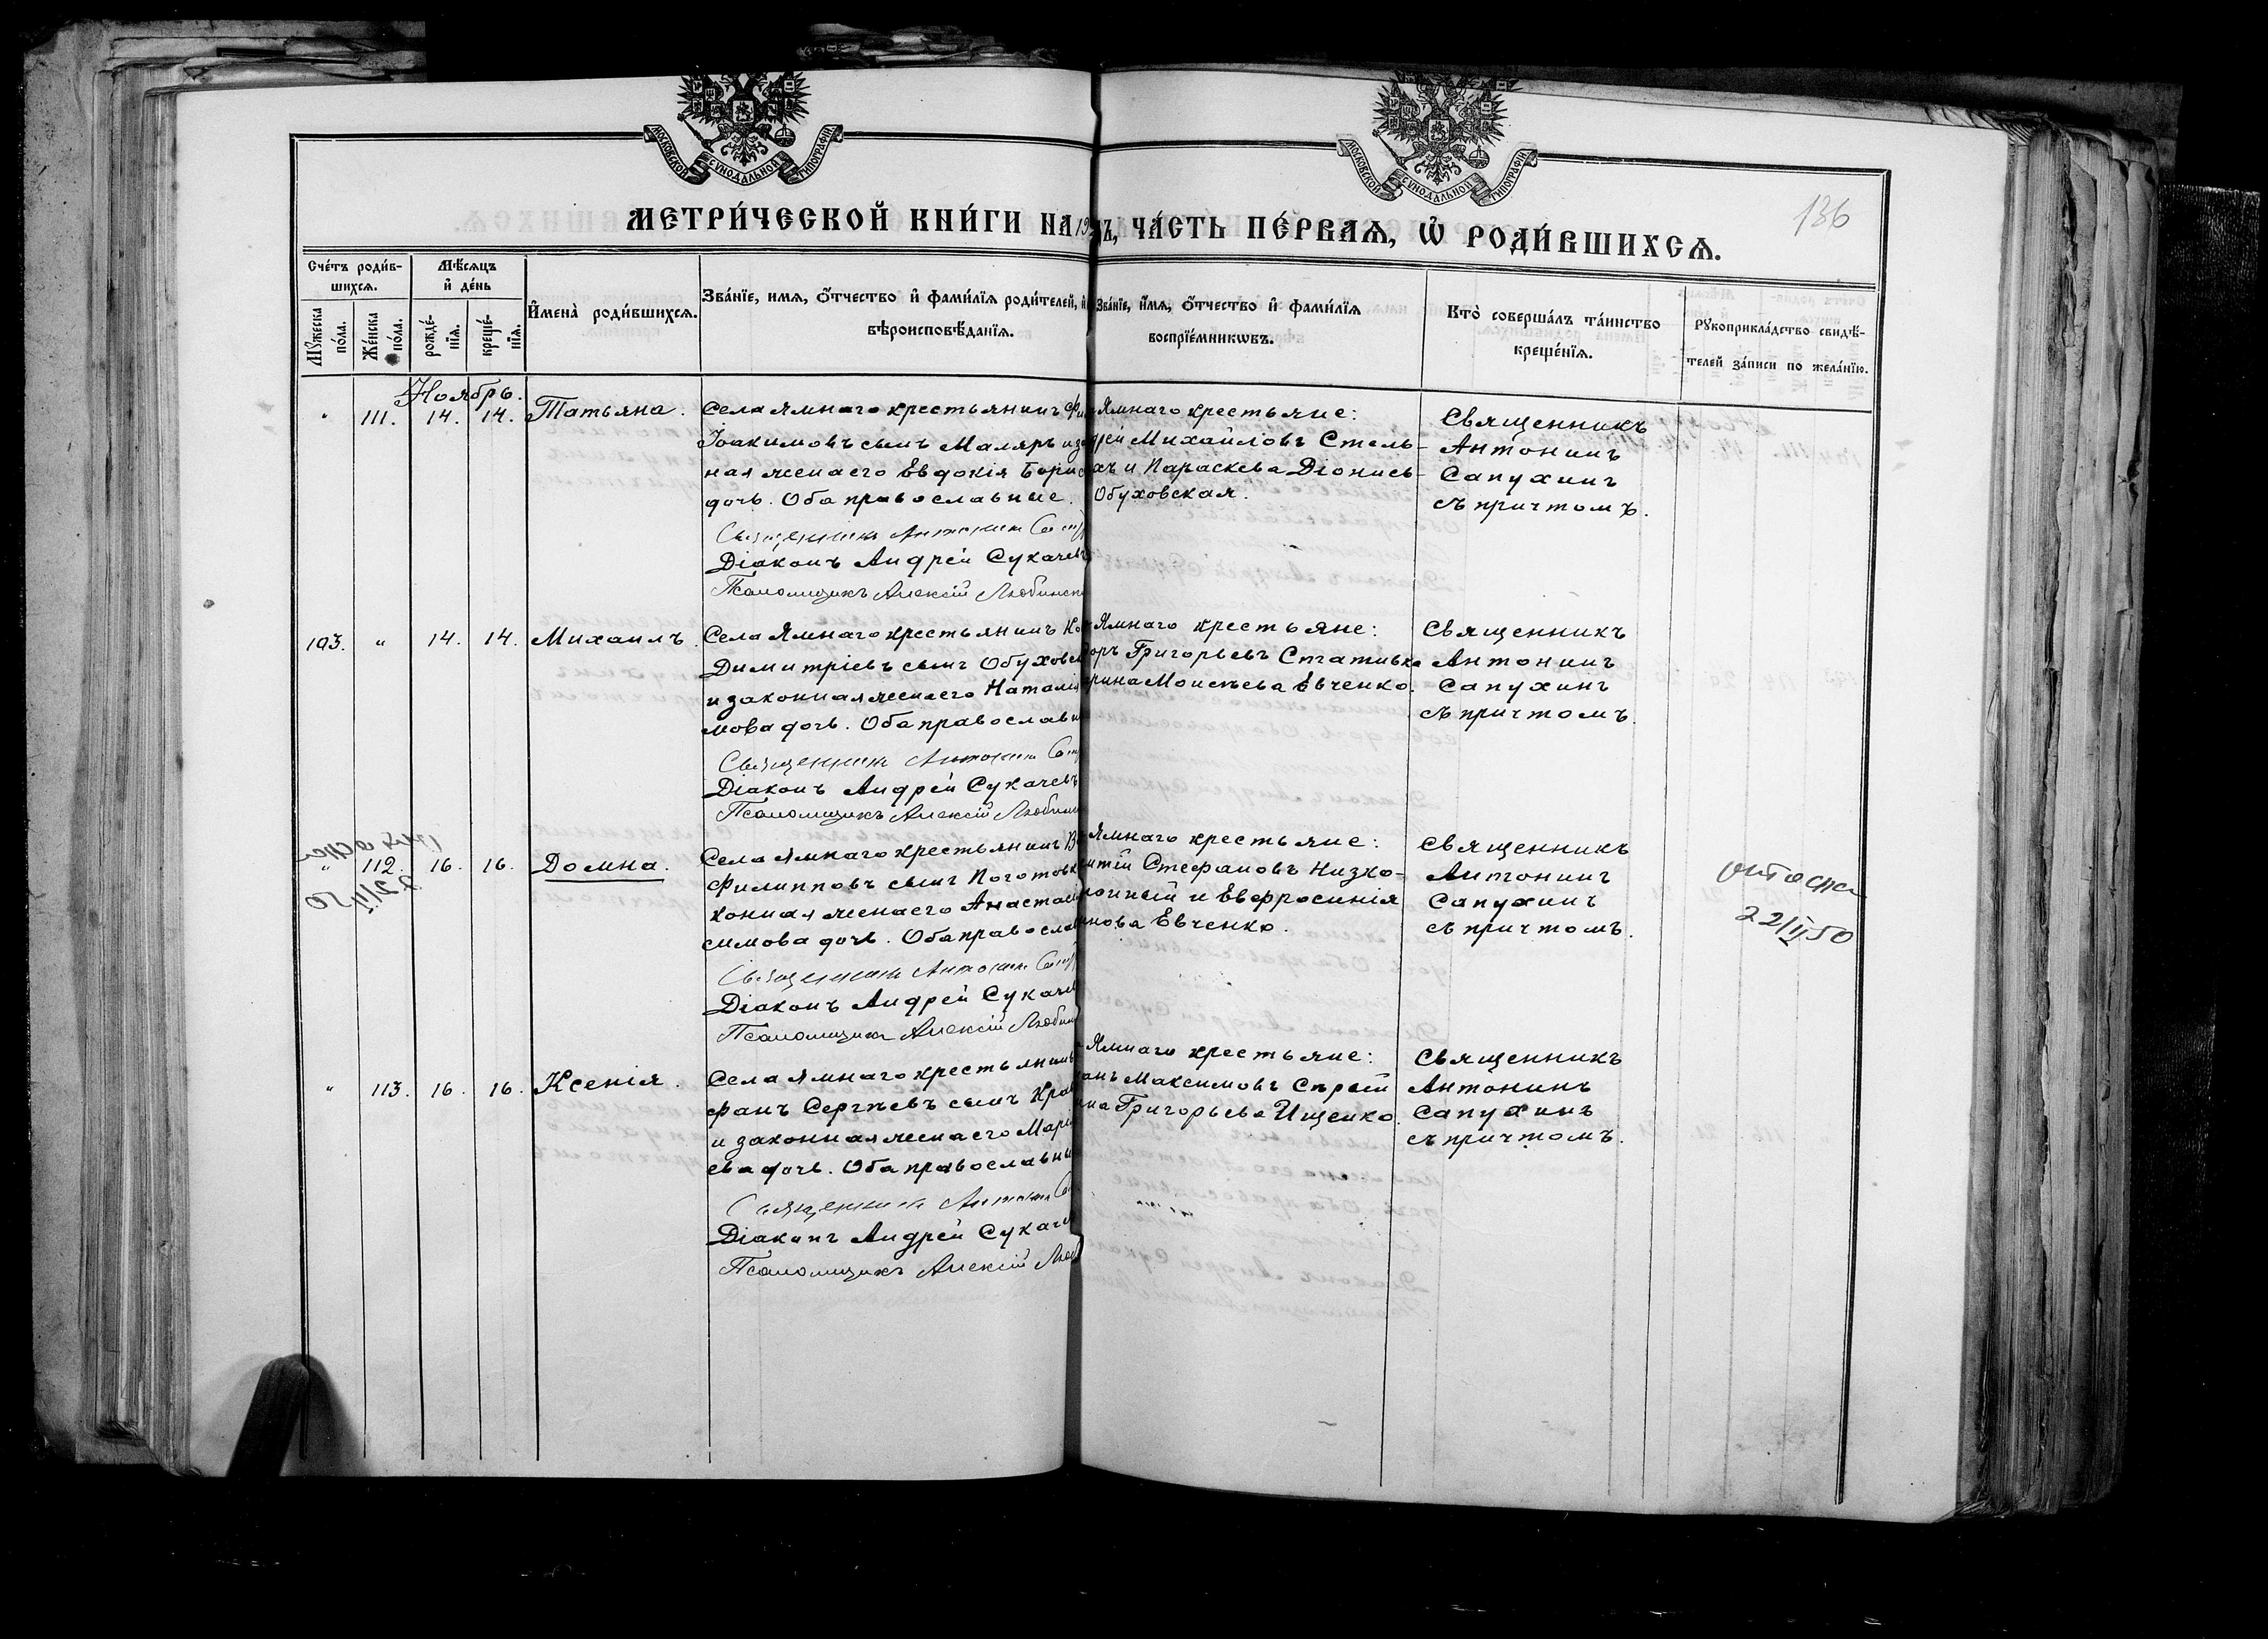 МОСКОВСКОЙ СѴНОДАЛЬНОЙ ТИПОГРАФІИ
МОСКОВСКОЙ СѴНОДАЛЬНОЙ ТИПОГРАФІИ
136
МЕТРИ́ЧЕСКОЙ КНИ́ГИ НА 19
Ъ, ЧА́СТЬ ПЕ́РВАѦ, Ѡ҆ РОДИ́ВШИХСѦ.
Сче́тъ роди́в-
шихсѧ.
Мꙋ́жеска
по́ла.
Же́нска
по́ла.
Мѣ́сѧцъ
и҆ де́нь
рожде́-
нїѧ.
креще́-
нїѧ.
И҆мена̀ роди́вшихсѧ.
Зва́нїе, имѧ, ѻ҆́тчество и҆ фами́лїѧ роди́телей, и҆
вѣроисповѣ́данїѧ.
Зва́нїе, и҆́мѧ, ѻ҆́тчество и҆ фами́лїѧ
воспрїе́мникѡвъ.
Кто̀ соверша́лъ та́инство
креще́нїѧ.
Рꙋкоприкла́дство свидѣ́-
телей за́писи по жела́нїю.
Ноябрь.
" 111. 14. 14. Татьяна.
Села Ямнаго крестьянинъ Фи
Іоакимовъ сынъ Маляръ и за
ная жена его Евдокія Борис
дочь. Оба православные.
Священникъ Антонинъ Сапу
Діаконъ Андрей Сукачевъ
Псаломщикъ Алексій Любинск
Ямнаго крестьяне:
дрей Михайловъ Стель-
хъ и Параскева Діонись-
Обуховская.
Священникъ
Антонинъ
Сапухинъ
съ причтомъ.
103. " 14. 14. Михаилъ.
Села Ямнаго крестьянинъ Ко
Димитріевъ сынъ Обуховск
и законная жена его Наталія
мова дочь. Оба православн
Священникъ Антонинъ Сапу
Діаконъ Андрей Сукачевъ
Псаломщикъ Алексій Любин
Ямнаго крестьяне:
оръ Григорьевъ Стативка
рина Моисѣева Евченко.
Священникъ
Антонинъ
Сапухинъ
съ причтомъ.
" 112. 16. 16. Домна.
22/II 50
Села Ямнаго крестьянинъ В
Филипповъ сынъ Поготовк
конная жена его Анастасі
симова дочь. Оба православ
Священникъ Антонинъ Сапу
Діаконъ Андрей Сукаче
Псаломщикъ Алексій Любин
Ямнаго крестьяне:
нтій Стефановъ Низко-
лонный и Евфросинія
нова Евченко.
Священникъ
Антонинъ
Сапухинъ
съ причтомъ.
22/II 50
" 113. 16. 16. Ксенія.
Села Ямнаго крестьянинъ
фанъ Сергѣевъ сынъ Крав
и законная жена его Мари
ева дочь. Оба православны
Священникъ Антонинъ Са
Діаконъ Андрей Сукаче
Псаломщикъ Алексій Люб
Ямнаго крестьяне:
анъ Максимовъ Сѣрый
на Григорьева Ищенко.
Священникъ
Антонинъ
Сапухинъ
съ причтомъ.